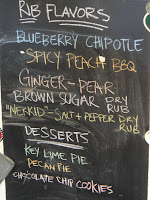 RIB FLAVORS
BLUEBERRY CHIPOTLE
SPICY PEACH BBQ
GINGER-PEAR
BROWN SUGAR DRY RUB
"NEKKID"-SALT + PEPPER DRY RUB
DESSERTS
KEY LIME PIE
PECAN PIE
CHOCOLATE CHIP COOKIES